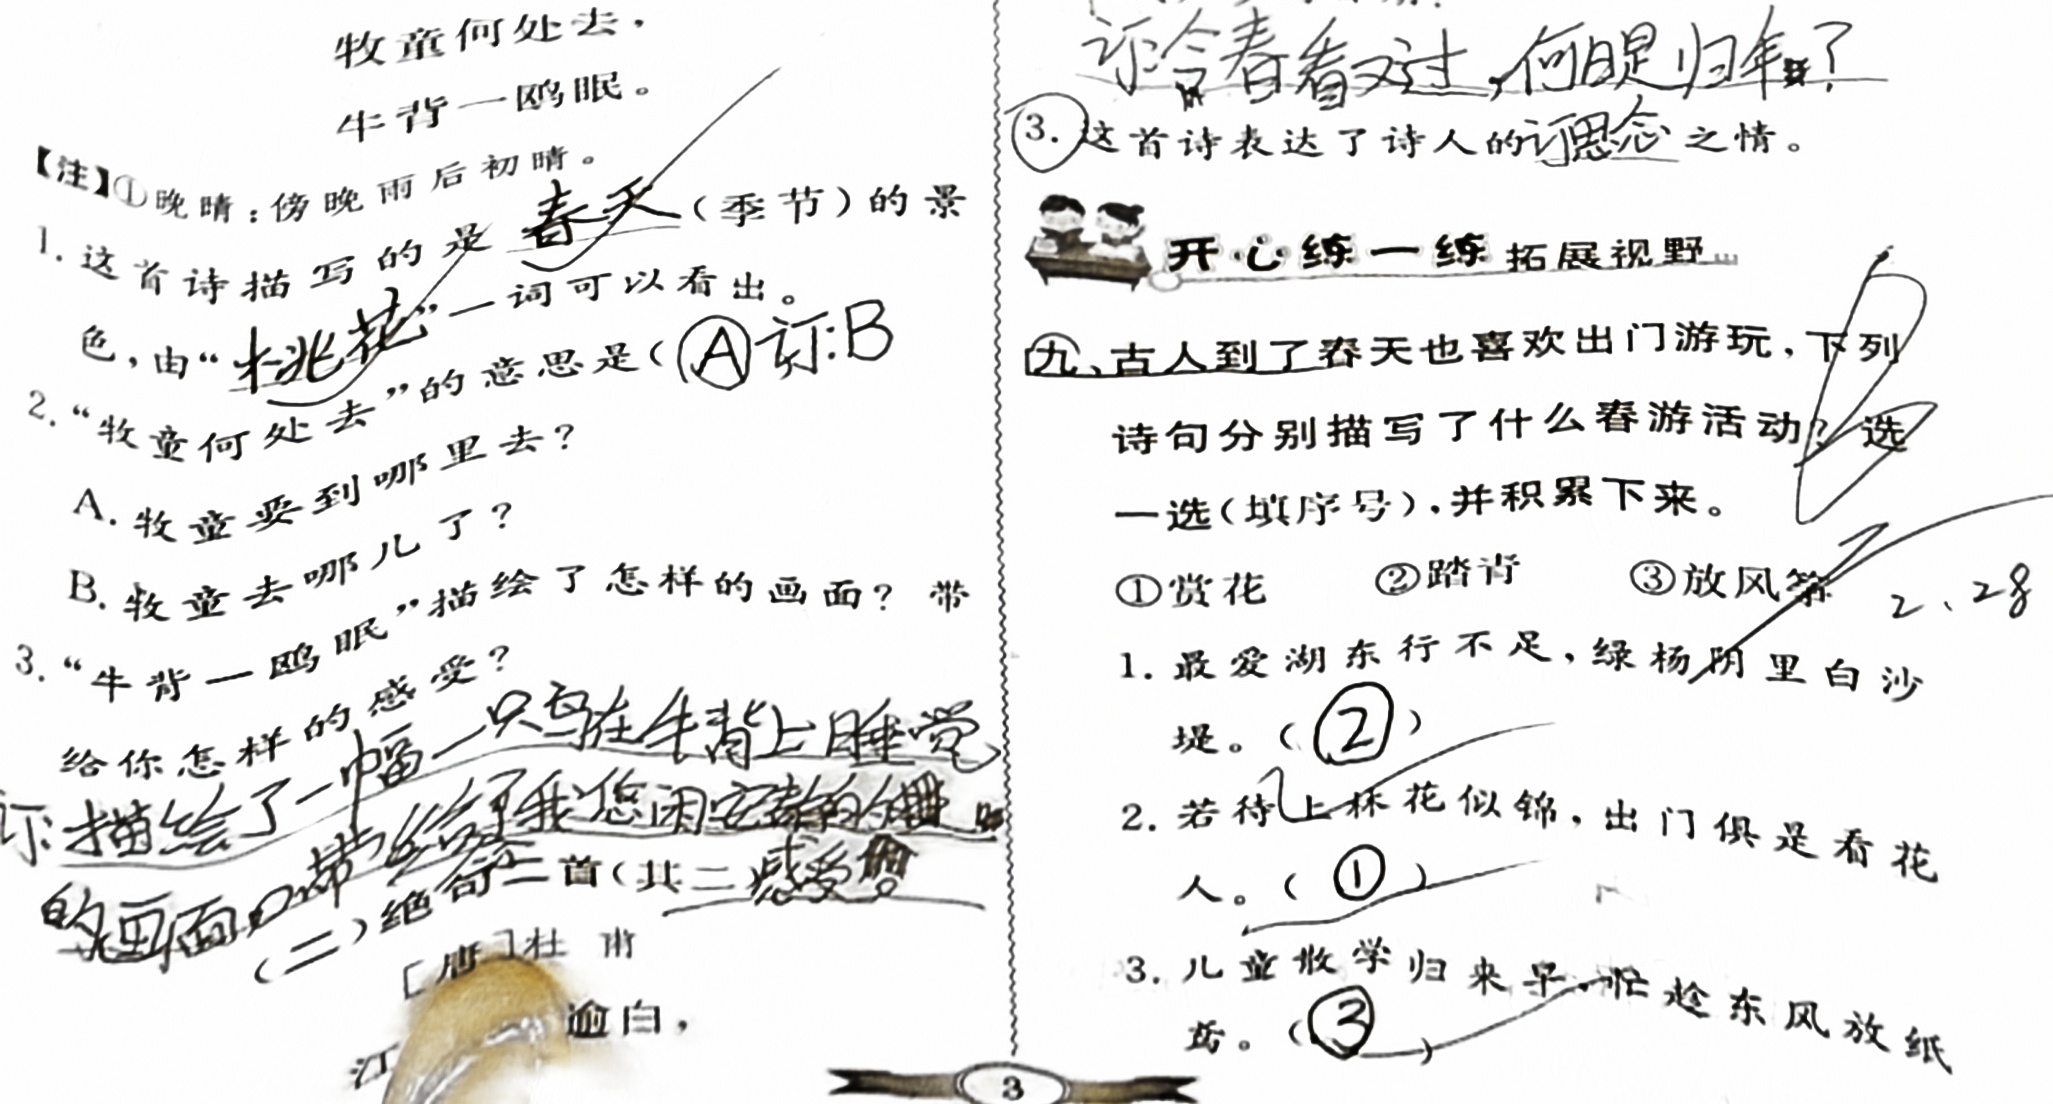 牧童何处去，
牛背一鸥眠。
【注】①晚晴：傍晚雨后初晴。
1. 这首诗描写的是 春天（季节）的景
色，由“桃花”一词可以看出。
2. “牧童何处去”的意思是（A 订:B
A. 牧童要到哪里去？
B. 牧童去哪儿了？
3. “牛背一鸥眠”描绘了怎样的画面？带
给你怎样的感受？
描绘了一幅一只鸟在牛背上睡觉
的画面，带给了我悠闲安静的
感受。
（二）绝句二首（其二）
[唐]杜甫
江 逾白，
订:今春看又过，何日是归年？
3. 这首诗表达了诗人的订思念之情。
开心练一练 拓展视野
九、古人到了春天也喜欢出门游玩，下列
诗句分别描写了什么春游活动？选
一选（填序号），并积累下来。
①赏花 ②踏青 ③放风筝
2、28
1. 最爱湖东行不足，绿杨阴里白沙
堤。（②）
2. 若待上林花似锦，出门俱是看花
人。（①）
3. 儿童散学归来早，忙趁东风放纸
鸢。（③）
3